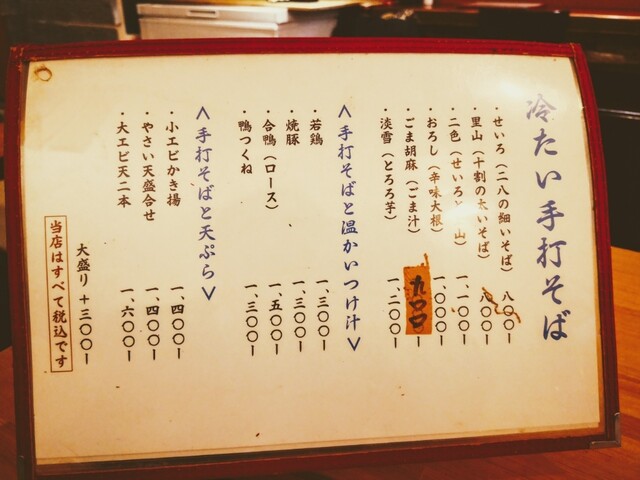 冷たい手打そば
・せいろ（二八の細いそば） 八〇〇ー
・里山（十割の太いそば） 八〇〇ー
・二色（せいろと 山） 一、一〇〇ー
・おろし（辛味大根） 一、〇〇〇ー
・ごま胡麻（ごま汁） 九〇〇ー
・淡雪（とろろ芋） 一、二〇〇ー
＜手打そばと温かいつけ汁＞
・若鶏 一、三〇〇ー
・焼豚 一、三〇〇ー
・合鴨（ロース） 一、五〇〇ー
・鴨つくね 一、三〇〇ー
＜手打そばと天ぷら＞
・小エビかき揚 一、四〇〇ー
・やさい天盛合せ 一、四〇〇ー
・大エビ天二本 一、六〇〇ー
大盛り ＋三〇〇ー
当店はすべて税込です